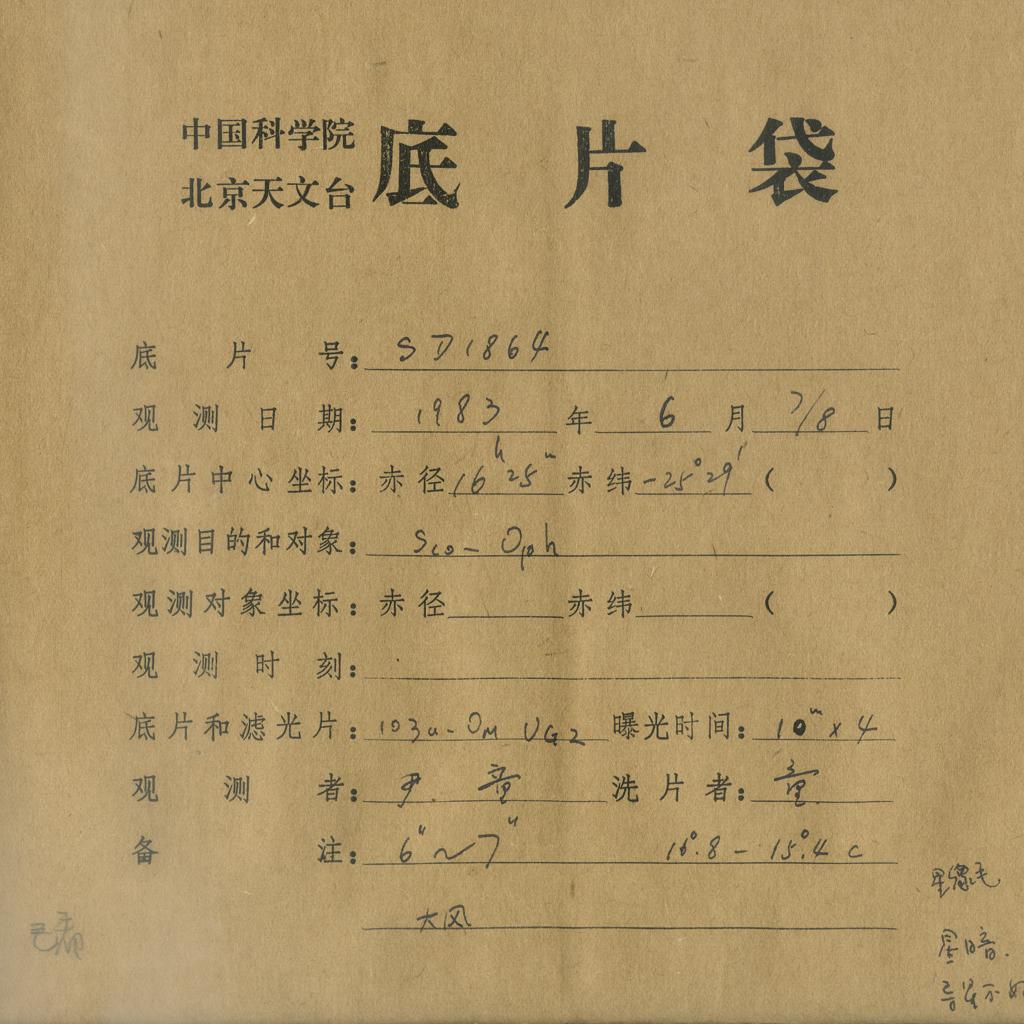 中国科学院
北京天文台
底片袋
底片号：SD1864
观测日期：1983年6月7/8日
底片中心坐标：赤径16h25m赤纬-25°29′（ ）
观测目的和对象：Sco-Oph
观测对象坐标：赤径 赤纬 （ ）
观测时刻：
底片和滤光片：103a-OM UG2 曝光时间：10m×4
观测者：尹.童 洗片者：童
备注：6"～7" 16°.8-15°.4 C
大风
星像毛
星暗.